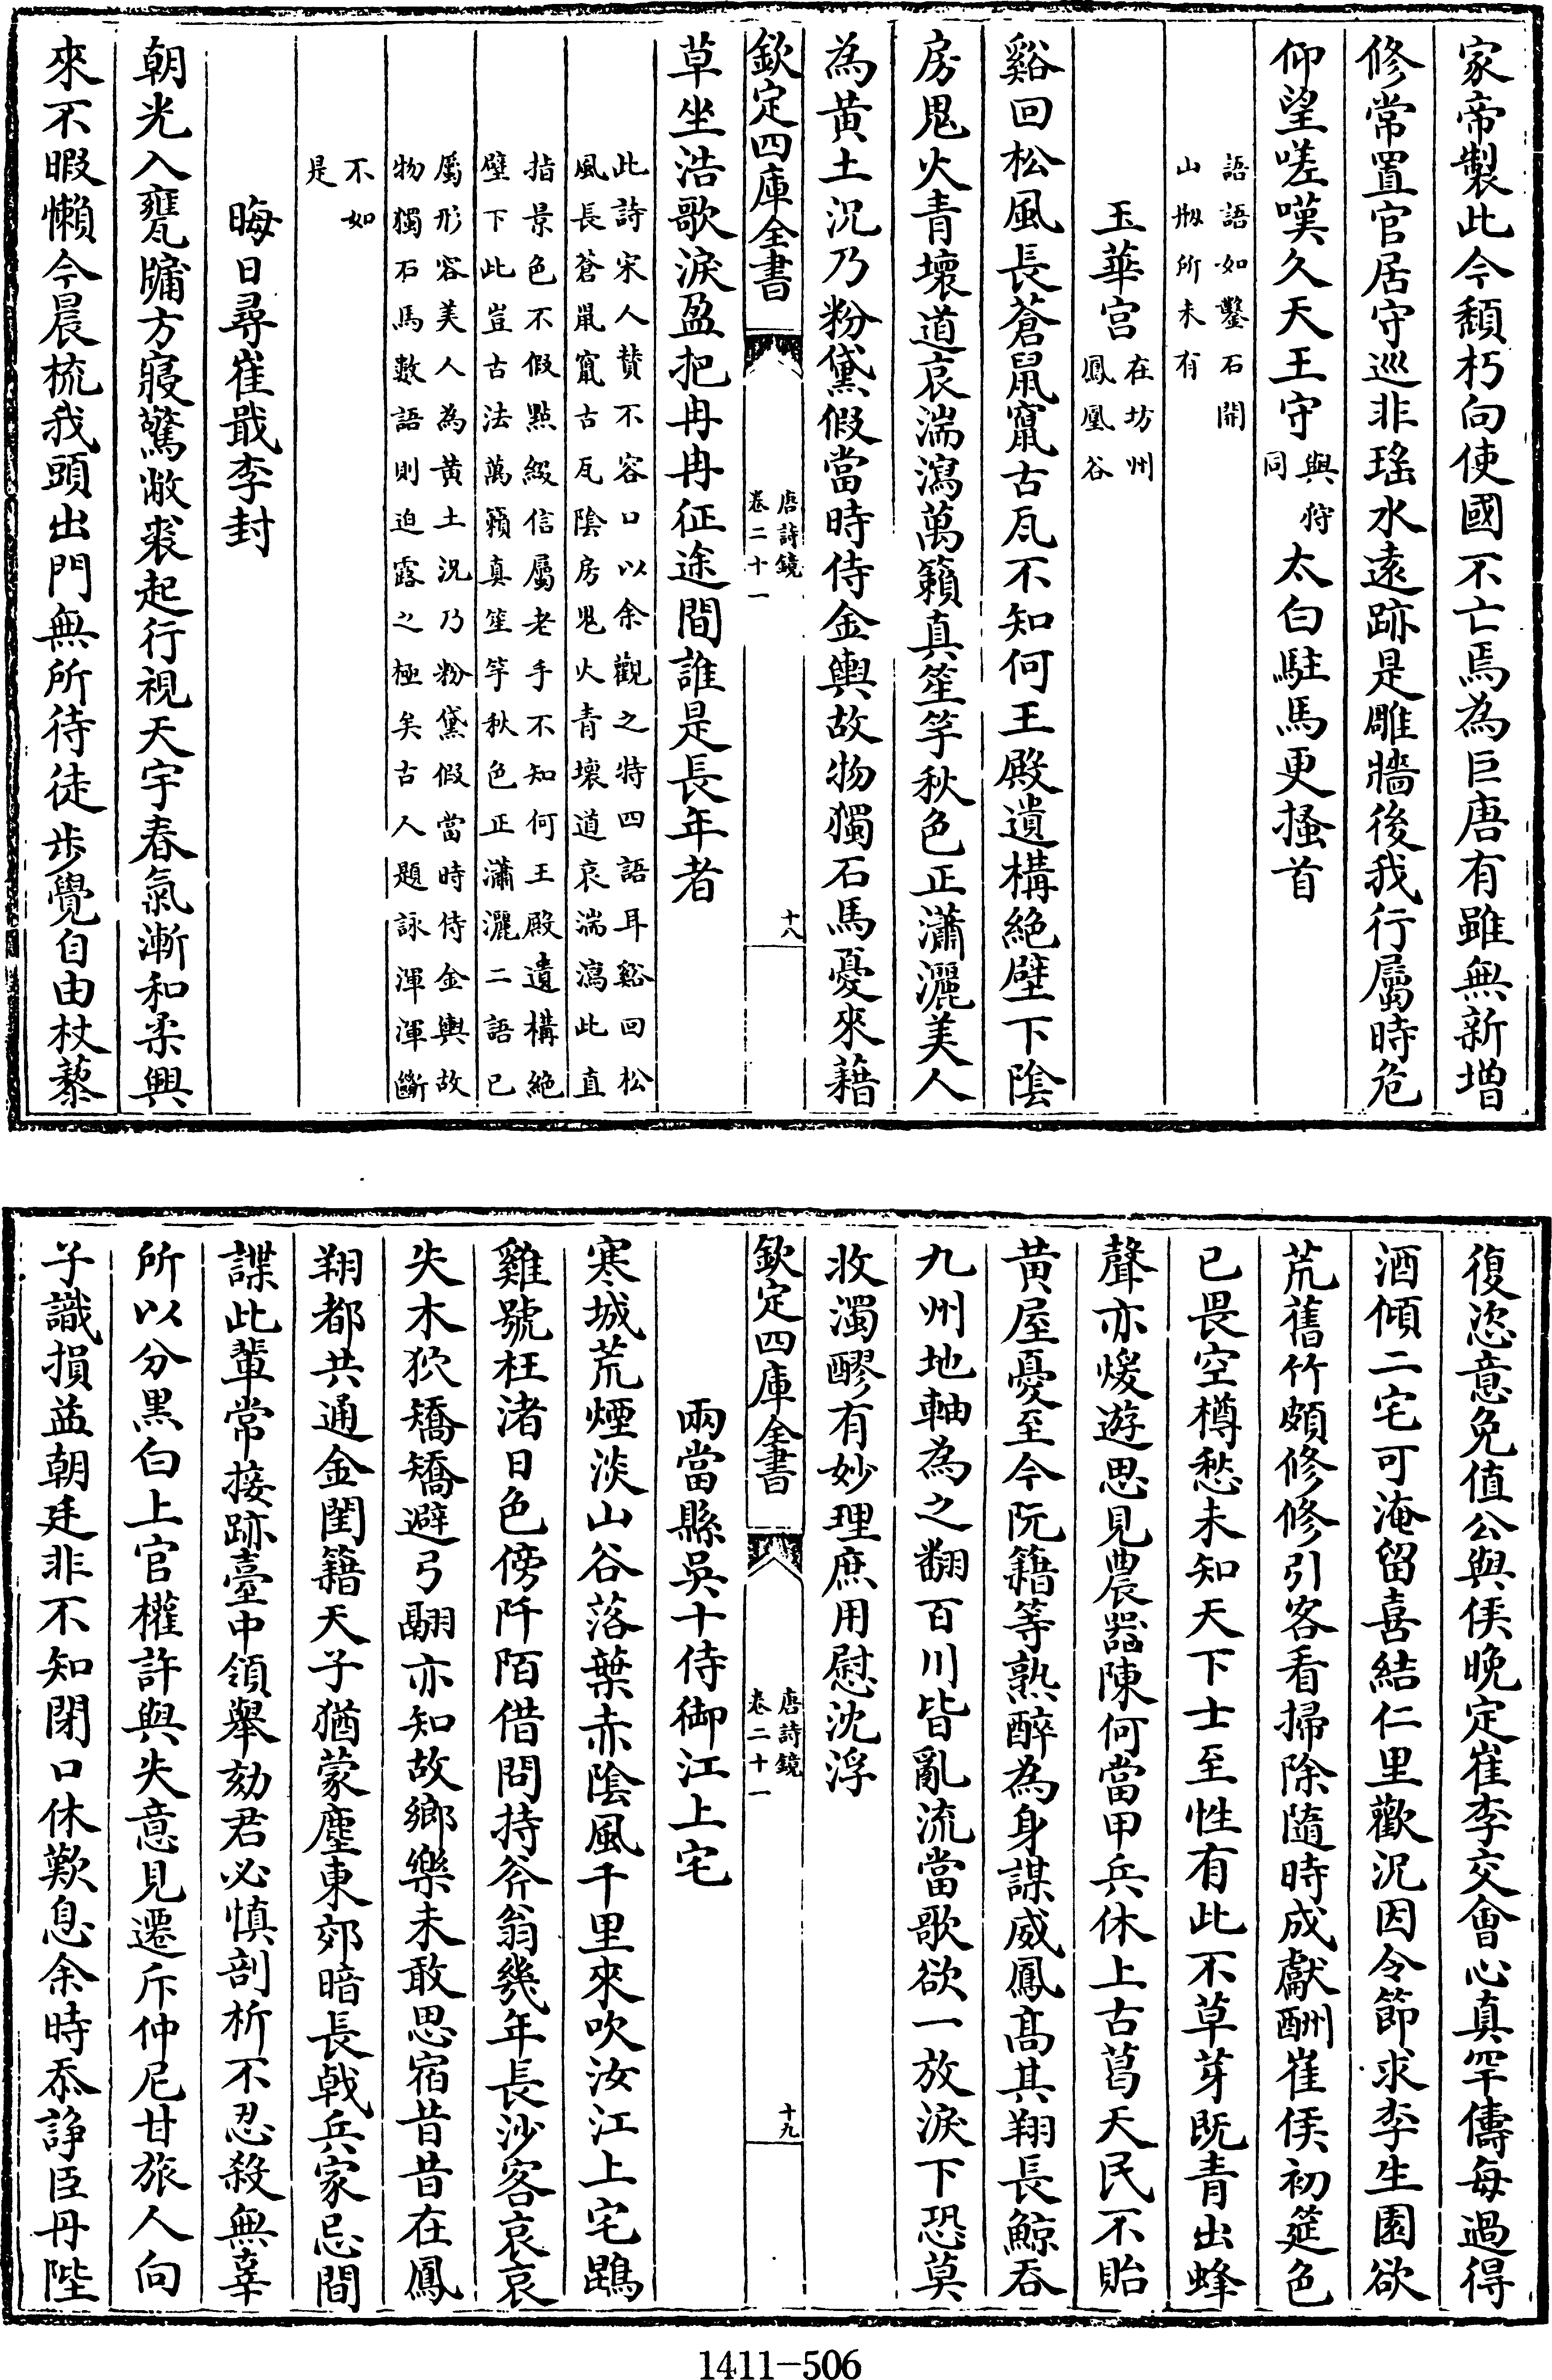 家帝製此今頽朽向使國不亡焉為巨唐有雖無新增
修常置官居守巡非瑤水遠跡是雕牆後我行屬時危
仰望嗟嘆久天王守與狩同太白駐馬更搔首
語語如鑿石開
山剏所未有
玉華宫在坊州鳳凰谷
谿回松風長蒼鼠竄古瓦不知何王殿遺構絶壁下陰
房鬼火青壞道哀湍瀉萬籟真笙竽秋色正瀟灑美人
為黄土况乃粉黛假當時侍金輿故物獨石馬憂來藉
欽定四庫全書
唐詩鏡
卷二十一
十八
草坐浩歌淚盈把冉冉征途間誰是長年者
此詩宋人賛不容口以余觀之特四語耳谿回松
風長蒼鼠竄古瓦陰房鬼火青壞道哀湍瀉此直
指景色不假點綴信屬老手不知何王殿遺構絶
壁下此豈古法萬籟真笙竽秋色正瀟灑二語已
屬形容美人為黄土况乃粉黛假當時侍金輿故
物獨石馬數語則迫露之極矣古人題詠渾渾斷
不如
是
晦日尋崔戢李封
朝光入甕牖方寢驚敝裘起行視天宇春氣漸和柔興
來不暇懶今晨梳我頭出門無所待徒步覺自由杖藜
復恣意免值公與侯晚定崔李交會心真罕儔每過得
酒傾二宅可淹留喜結仁里歡况因令節求李生園欲
荒舊竹頗修修引客看掃除隨時成獻酬崔侯初筵色
已畏空樽愁未知天下士至性有此不草芽既青出蜂
聲亦煖遊思見農器陳何當甲兵休上古葛天民不貽
黄屋憂至今阮籍等熟醉為身謀威鳳高其翔長鯨吞
九州地軸為之翻百川皆亂流當歌欲一放淚下恐莫
收濁醪有妙理庶用慰沈浮
欽定四庫全書
唐詩鏡
卷二十一
十九
兩當縣吳十侍御江上宅
寒城荒煙淡山谷落葉赤陰風千里來吹汝江上宅鵾
雞號枉渚日色傍阡陌借問持斧翁幾年長沙客哀哀
失木狖矯矯避弓翮亦知故鄉樂未敢思宿昔昔在鳳
翔都共通金閨籍天子猶蒙塵東郊暗長戟兵家忌間
諜此輩常接跡臺中領舉劾君必慎剖析不忍殺無辜
所以分黑白上官權許與失意見遷斥仲尼甘旅人向
子識損益朝廷非不知閉口休歎息余時忝諍臣丹陛
1411-506